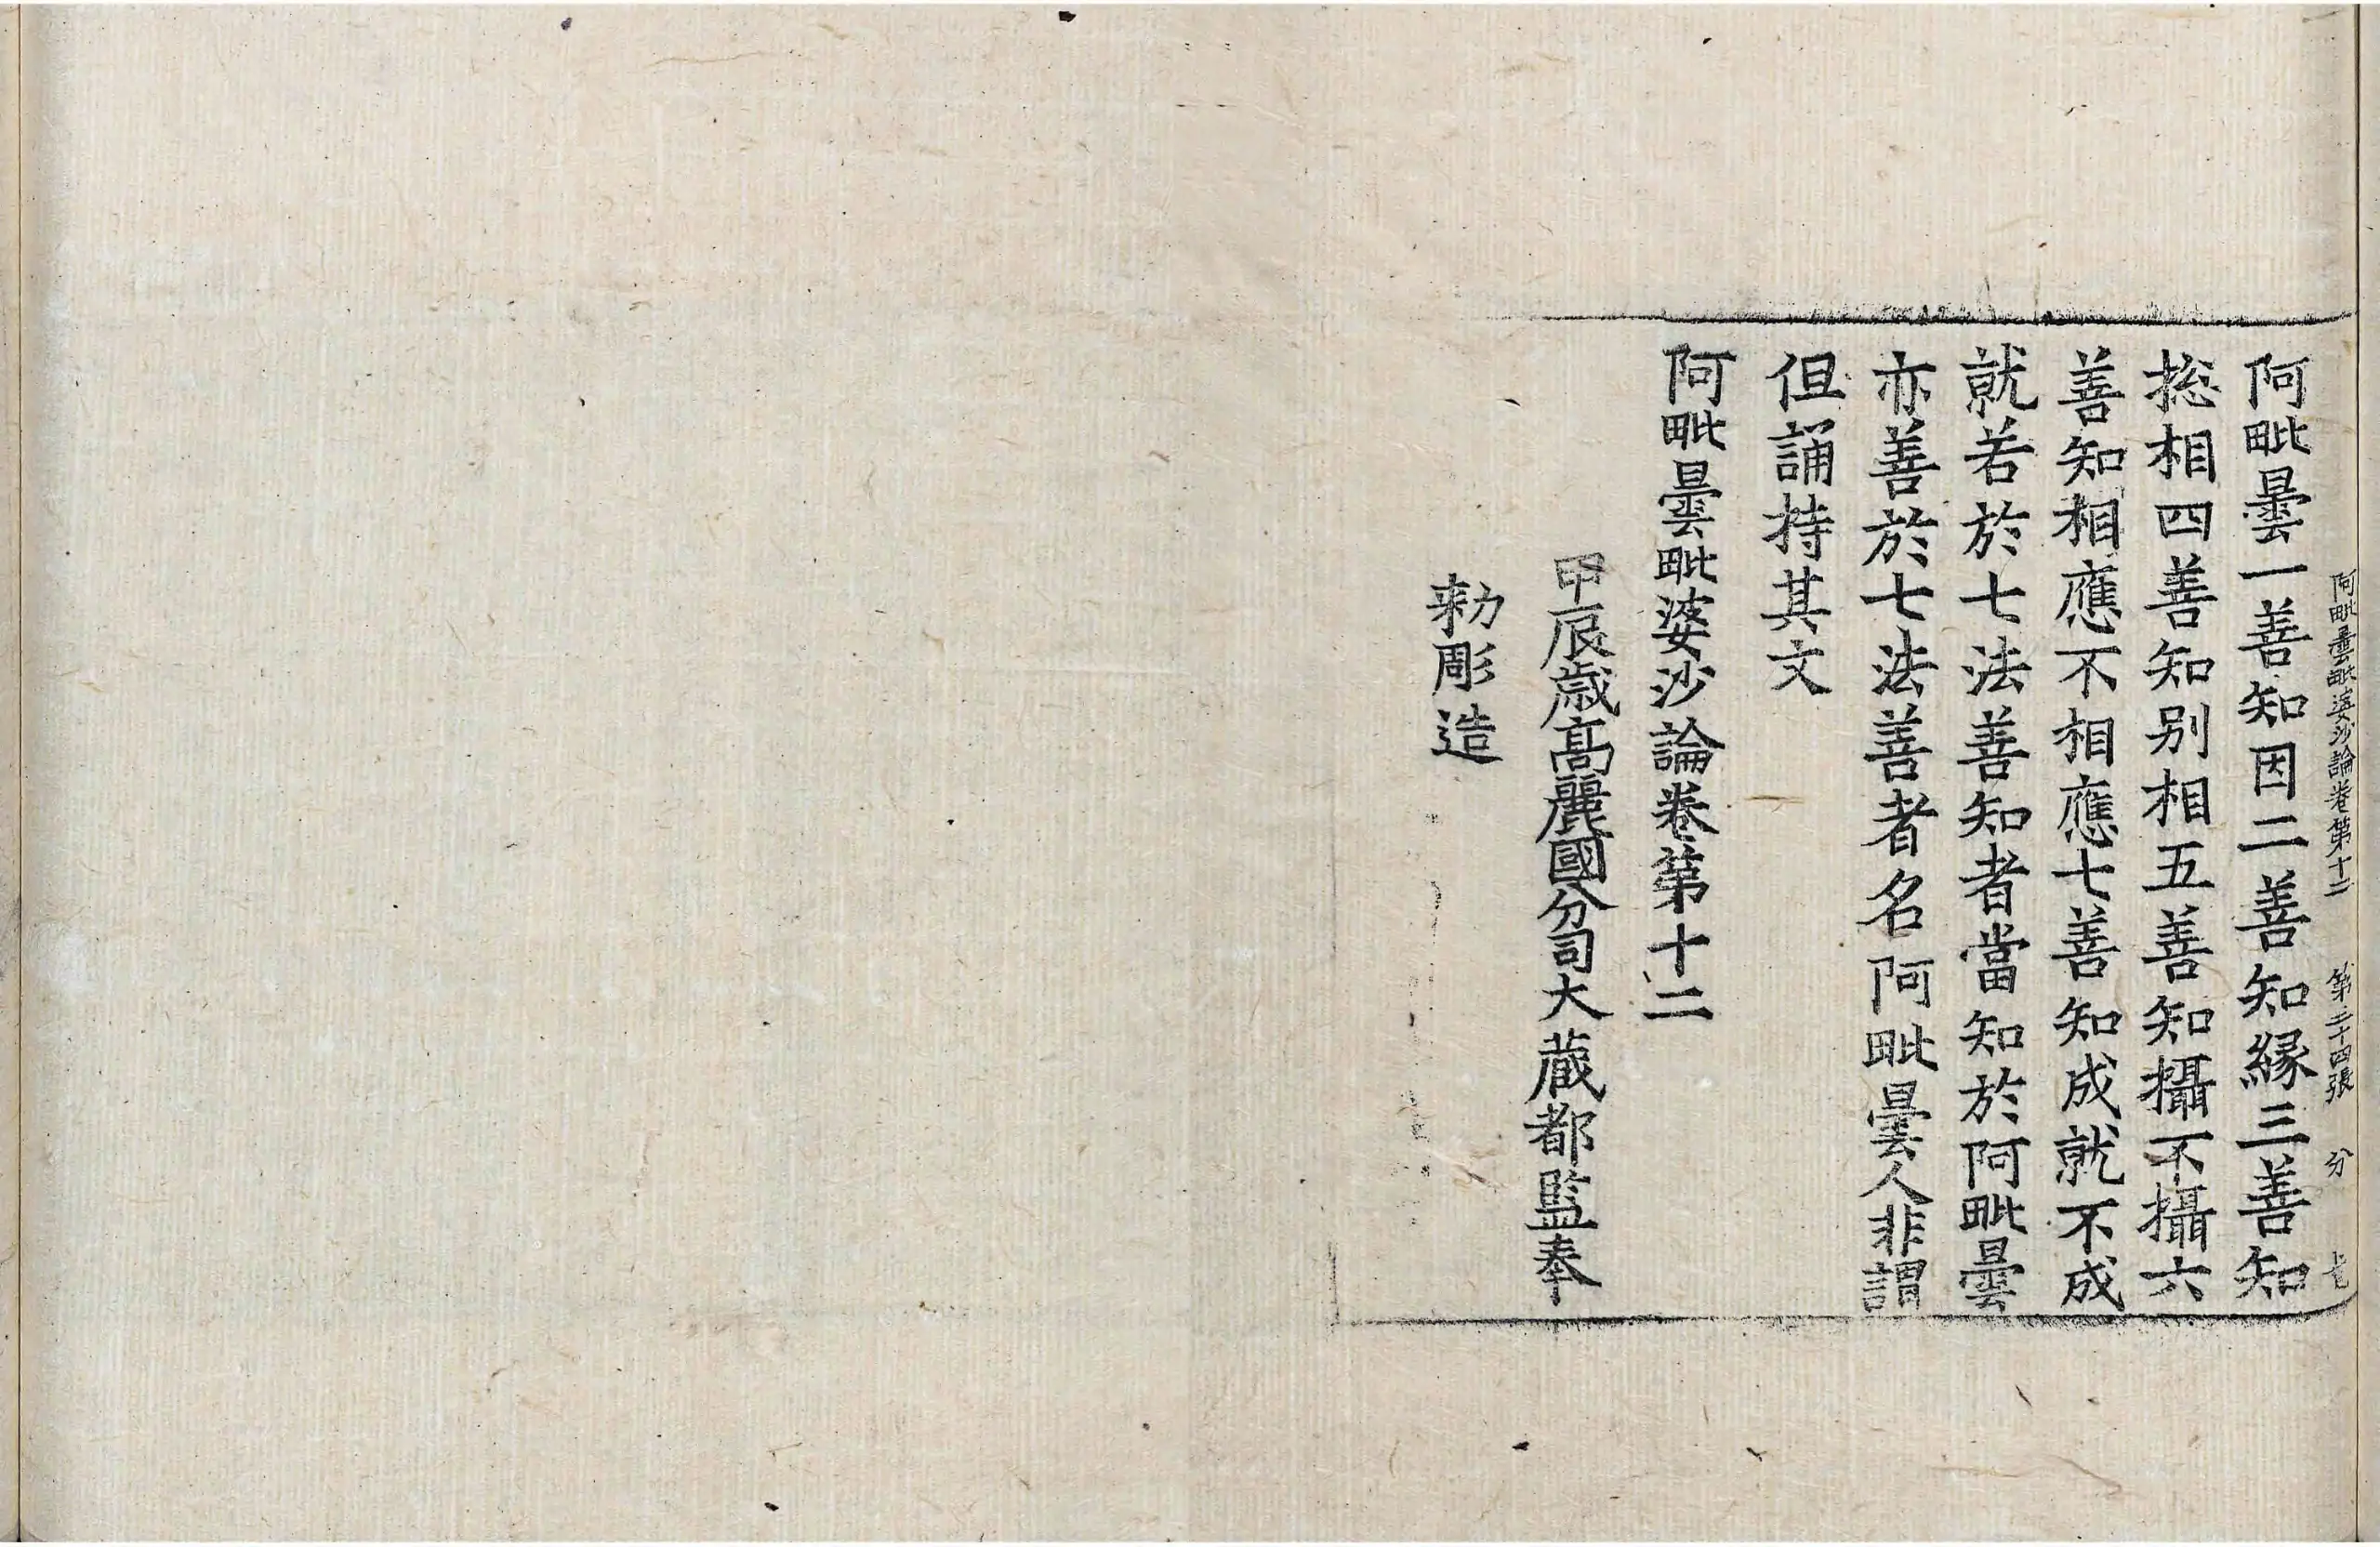 阿毗曇毗婆沙論卷第十二 第二十四張 分
阿毗曇一善知因二善知緣三善知
捴相四善知別相五善知攝不攝六
善知相應不相應七善知成就不成
就若於七法善知者當知於阿毗曇
亦善於七法善者名阿毗曇人非謂
但誦持其文
阿毗曇毗婆沙論卷第十二
甲辰歲高麗國分司大藏都監奉
勑彫造